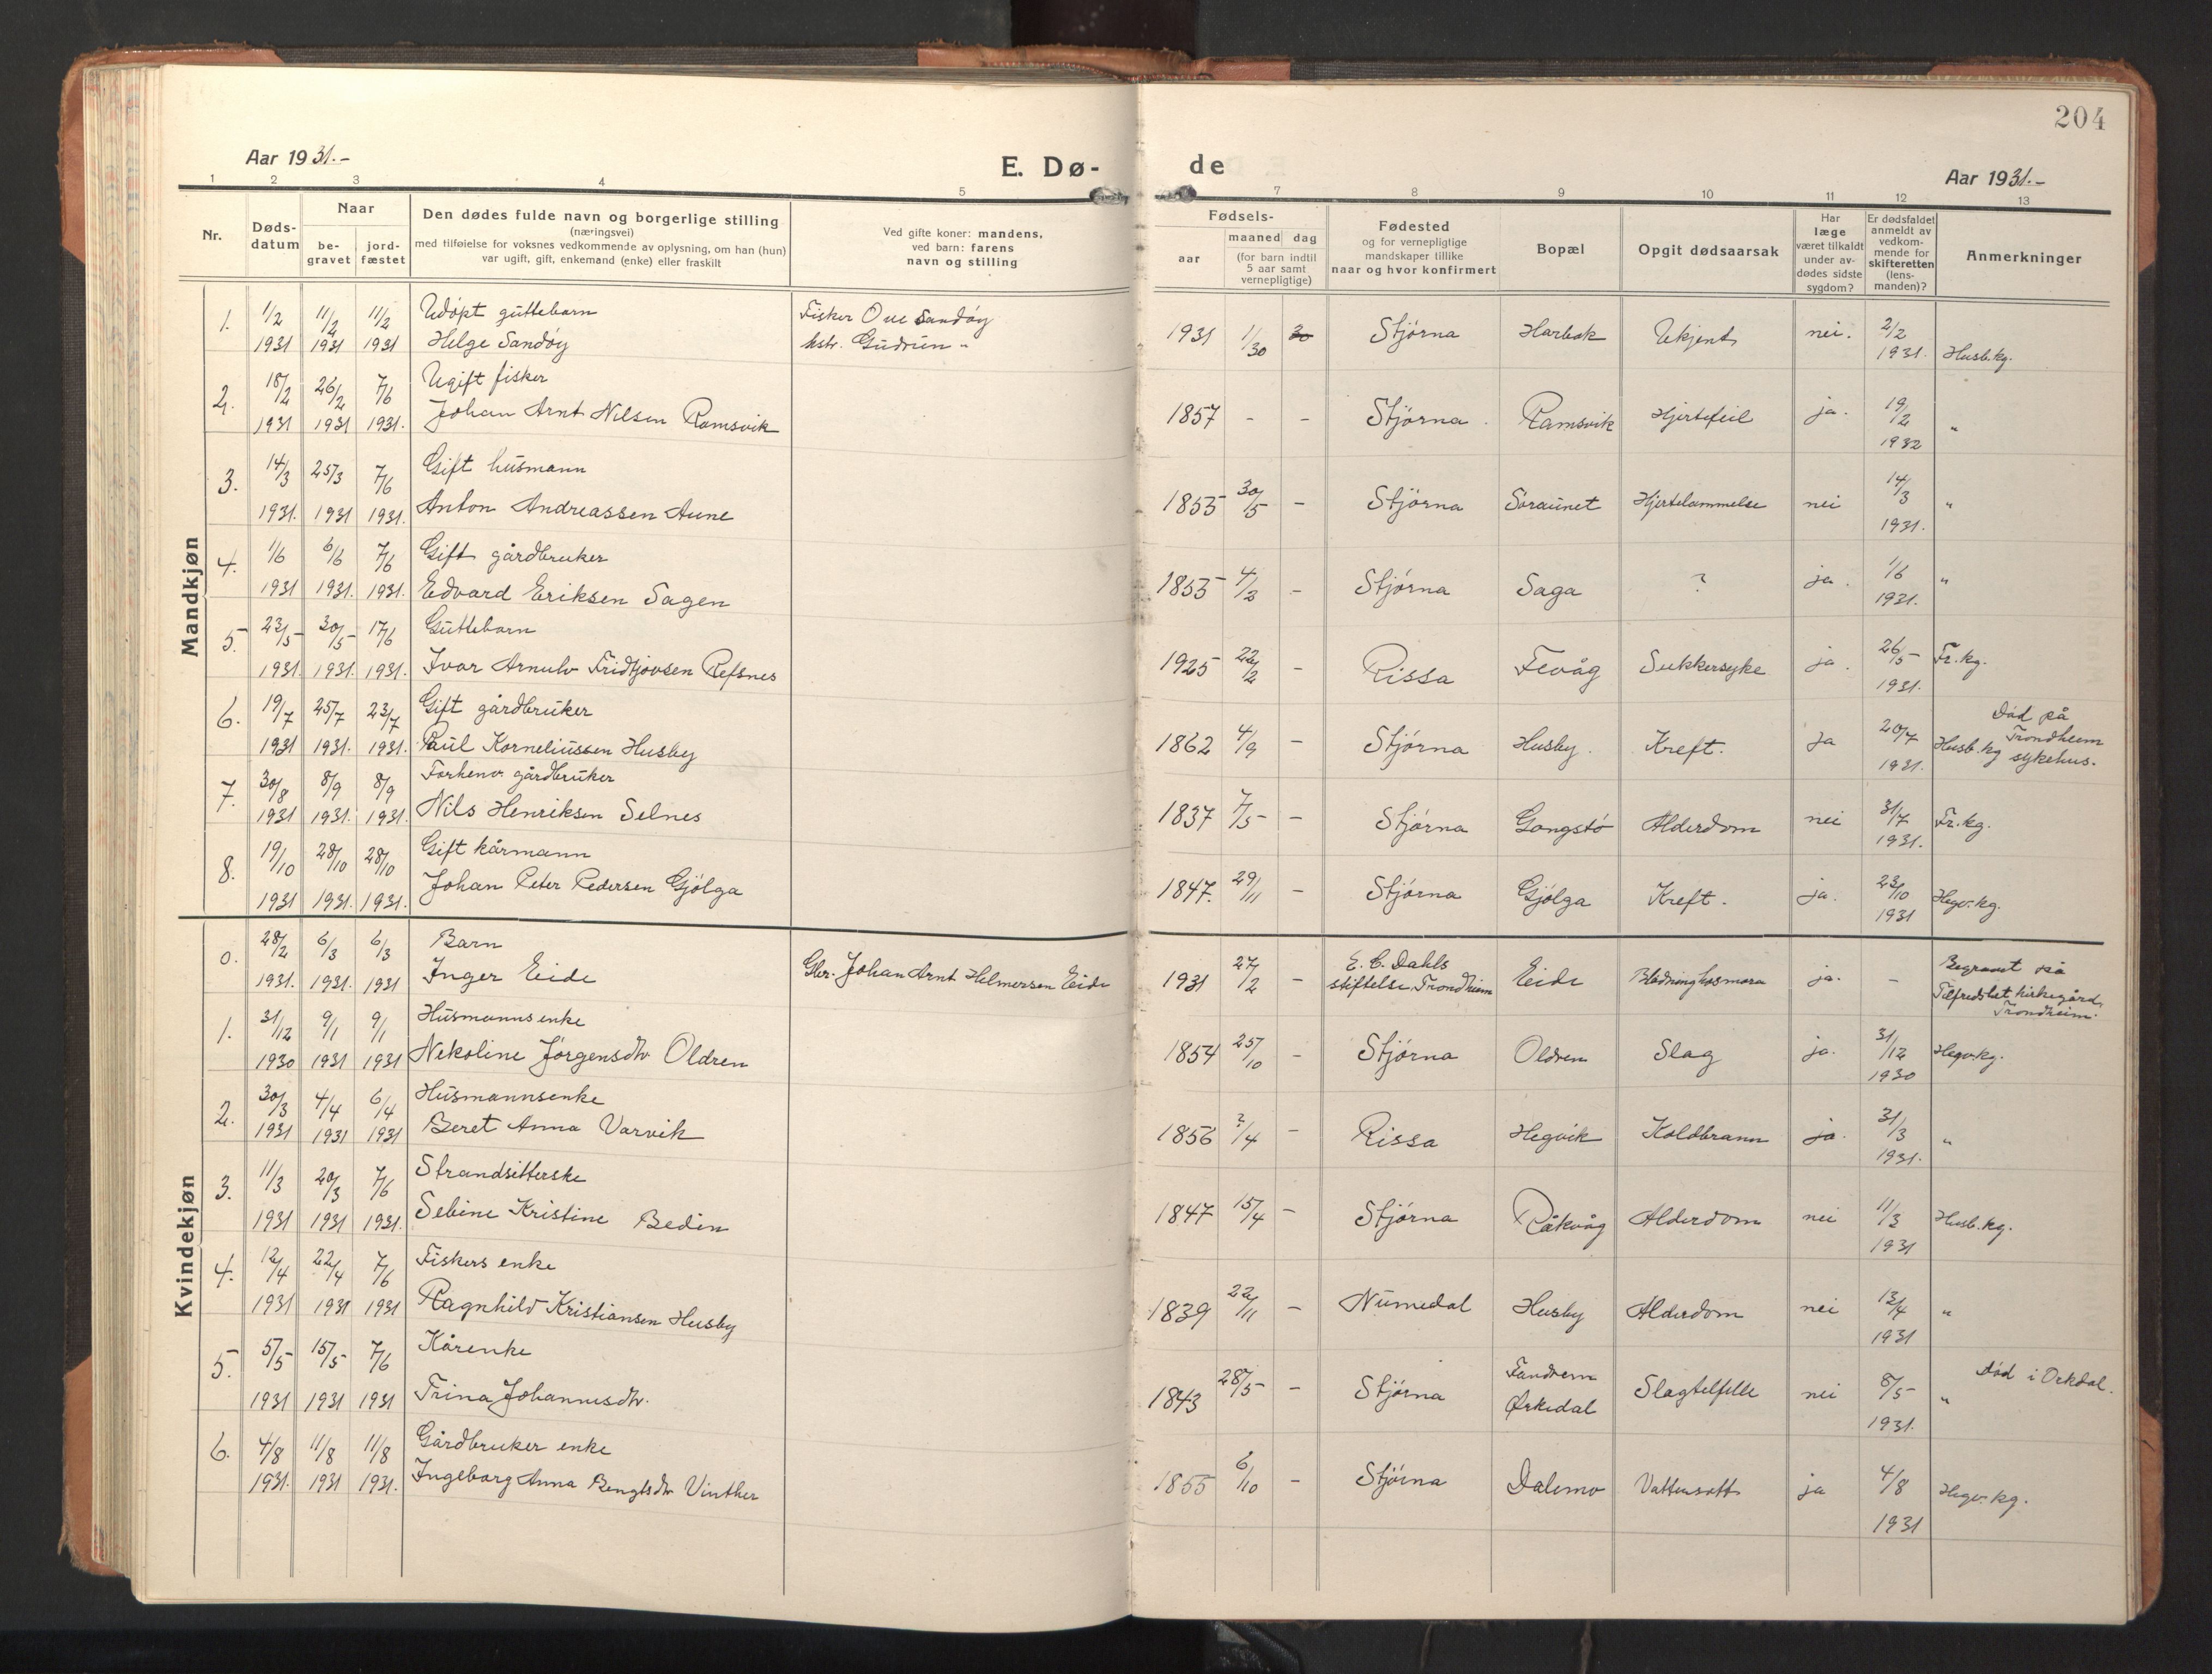 204
Aar 1931.-
E. Dø-
de
Aar 1931.-
1 2 3 4 5 7 8 9 10 11 12 13
Nr.
Døds-
datum
Naar
be-
gravet
jord-
fæstet
Den dødes fulde navn og borgerlige stilling
(næringsvei)
med tilføielse for voksnes vedkommende av oplysning, om han (hun)
var ugift, gift, enkemand (enke) eller fraskilt
Ved gifte koner: mandens,
ved barn: farens
navn og stilling
Fødsels-
aar
maaned dag
(for barn indtil
5 aar samt
vernepligtige)
Fødested
og for vernepligtige
mandskaper tillike
naar og hvor konfirmert
Bopæl
Opgit dødsaarsak
Har
læge
været tilkaldt
under av-
dødes sidste
sygdom?
Er dødsfaldet
anmeldt av
vedkom-
mende for
skifteretten
(lens-
manden)?
Anmerkninger
Mandkjøn
1. 1/2 1931 11/2 1931 11/2 1931 Udøpt guttebarn
Helge Sandøy
Fisker Ove Sandøy
hstr. Gudrun "
1931 1/30 30 Stjørna Harbak Ukjent nei. 2/2 1931. Husb.kg.
2. 18/2 1931 26/2 1931 7/6 1931. Ugift fisker
Johan Arnt Nilsen Ramsvik
1857 - - Stjørna Ramsvik Hjertefeil ja. 19/2 1932 "
3. 14/3 1931. 25/3 1931 7/6 1931. Gift husmann
Anton Andreassen Aune
1855 30/5 - Stjørna Søraunet Hjertelammelse nei 14/3 1931. "
4. 1/6 1931 6/6 1931. 7/6 1931. Gift gårdbruker
Edvard Eriksen Sagen
1855 4/2 - Stjørna Saga ? ja. 1/6 1931. "
5. 23/5 1931. 30/5 1931. 17/6 1931. Guttebarn
Ivar Arnulv Fridtjovsen Refsnes
1925 22/2 - Rissa Fevåg Sukkersyke ja. 26/5 1931. Fr.kg.
6. 19/7 1931 25/7 1931. 23/7 1931. Gift gårdbruker
Paul Korneliussen Husby
1862 4/9 - Stjørna Husby. Kreft. ja 20/7 1931. Husb.kg
Død på
Trondheim
sykehus.
7. 30/8 1931 8/9 1931. 8/9 1931. Forhenv gårdbruker
Nils Henriksen Selnes
1837 7/5 - Stjørna Gangstø Alderdom nei 31/7 1931. Fr.kg.
8. 19/10 1931 28/10 1931. 28/10 1931. Gift kårmann
Johan Peter Pedersen Gjølga
1847. 29/11 - Stjørna Gjølga Kreft. ja. 23/10 1931 Hegv.kg.
Kvindekjøn
0. 28/2 1931. 6/3 1931. 6/3 1931 Barn
Inger Eide
Gbr. Johan Arnt Helmersen Eide
1931 27/2 - E. C. Dahls
stiftelse, Trondheim Eide Blødning hos mora ja. - Begravet på
Tilfredshet kirkegård,
Trondheim.
1. 31/12 1930 9/1 1931 9/1 1931 Husmannsenke
Nekoline Jørgensdtr Oldren
1854 25/10 - Stjørna Oldren Slag ja. 31/12 1930 Hegv.kg.
2. 30/3 1931 4/4 1931 6/4 1931 Husmannsenke
Beret Anna Varvik
1856 ?/4 - Rissa Hegvik Koldbrann ja. 31/3 1931. "
3. 11/3 1931 20/3 1931 7/6 1931. Strandsitterske
Sebine Kristine Bedin
1847 15/4 - Stjørna Råkvåg Alderdom nei 11/3 1931 Husb.kg.
4. 12/4 1931 22/4 1931 7/6 1931 Fiskers enke
Ragnhild Kristiansen Husby
1839 22/11 - Numedal Husby Alderdom nei 13/4 1931 "
5. 5/5 1931 15/5 1931 7/6 1931 Kårenke
Trina Johannesdtr.
1843 28/5 - Stjørna Fandrem
Ørkedal Slagtilfelle nei 8/5 1931. " Død i Orkdal.
6. 4/8 1931. 11/8 1931 11/8 1931. Gårdbruker enke
Ingeborg Anna Bengtsdtr Vinther
1855 6/10 - Stjørna Dalemo Vattersott ja 4/8 1931 Hegv.kg.